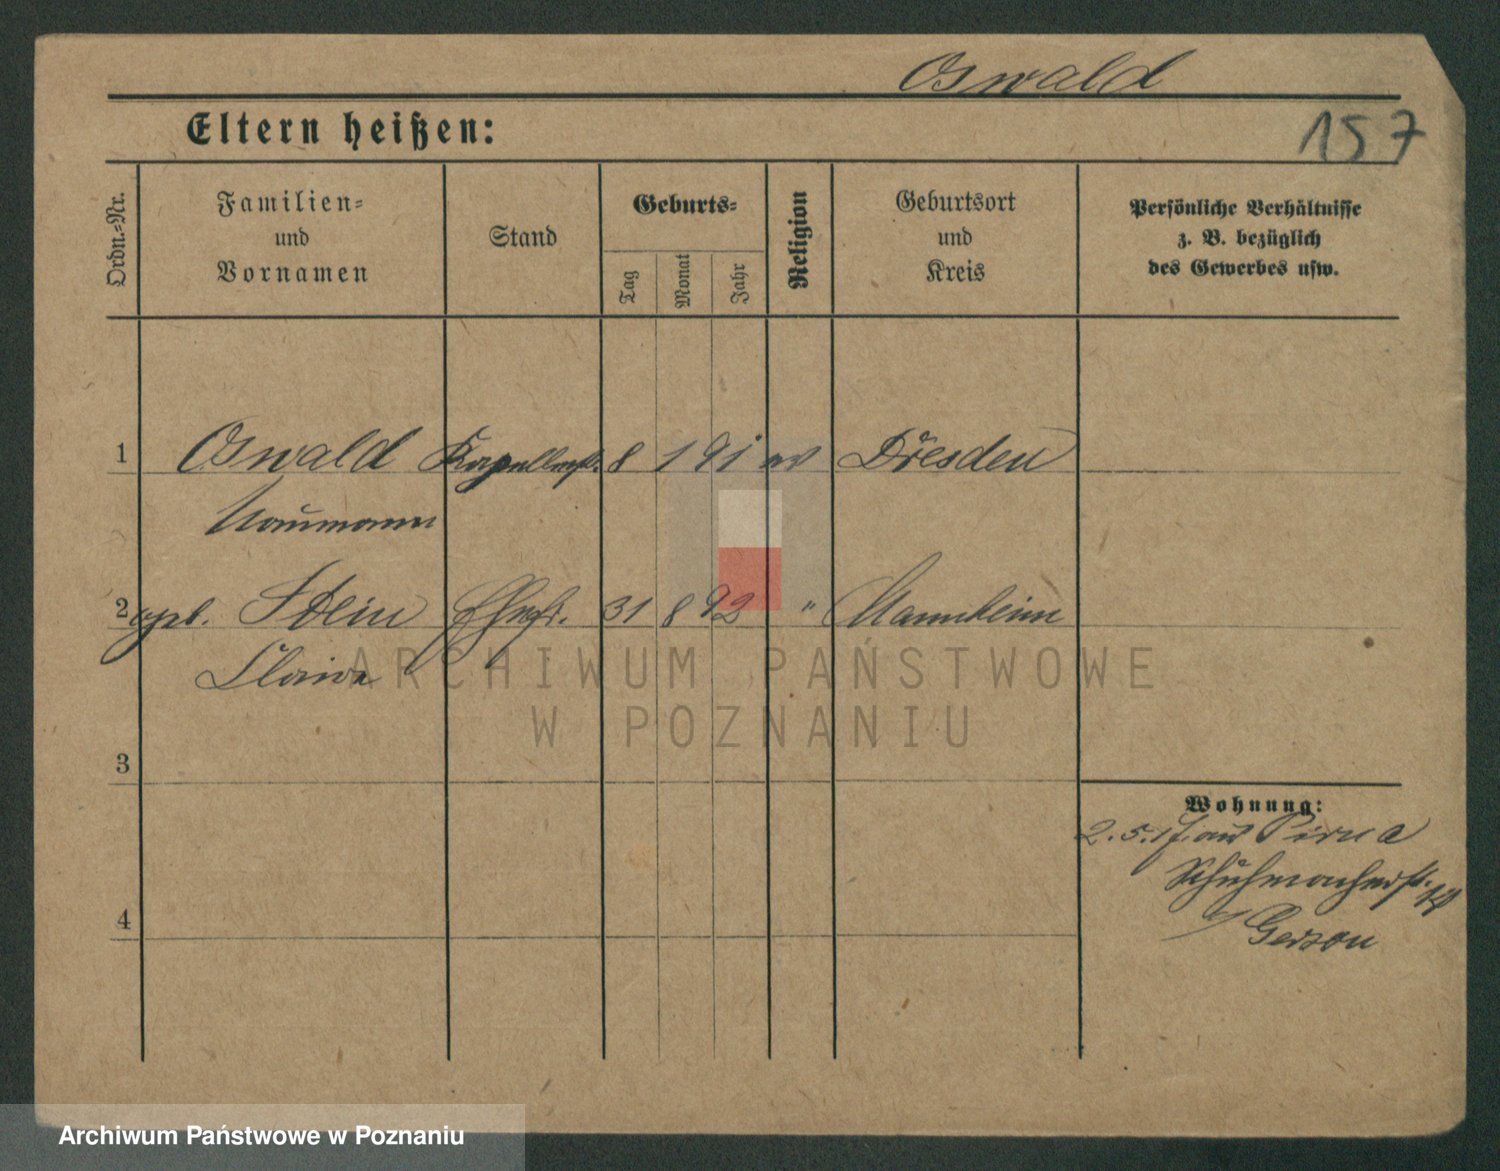 Oswald
157
Eltern heißen:
Ordn.-Nr.
Familien-
und
Vornamen
Stand
Geburts-
Tag
Monat
Jahr
Religion
Geburtsort
und
Kreis
Persönliche Verhältnisse
z. B. bezüglich
des Gewerbes usw.
1 Oswald Kapellmstr. 8 1 91 ev Dresden
Naumann
2 geb. Stein Ehefr. 31 8 92 " Mannheim
Claire
3
4
Wohnung:
2. 5. 17. aus Pirna
Schuhmacherstr.
b/ Gerson
ARCHIWUM PAŃSTWOWE
W POZNANIU
Archiwum Państwowe w Poznaniu